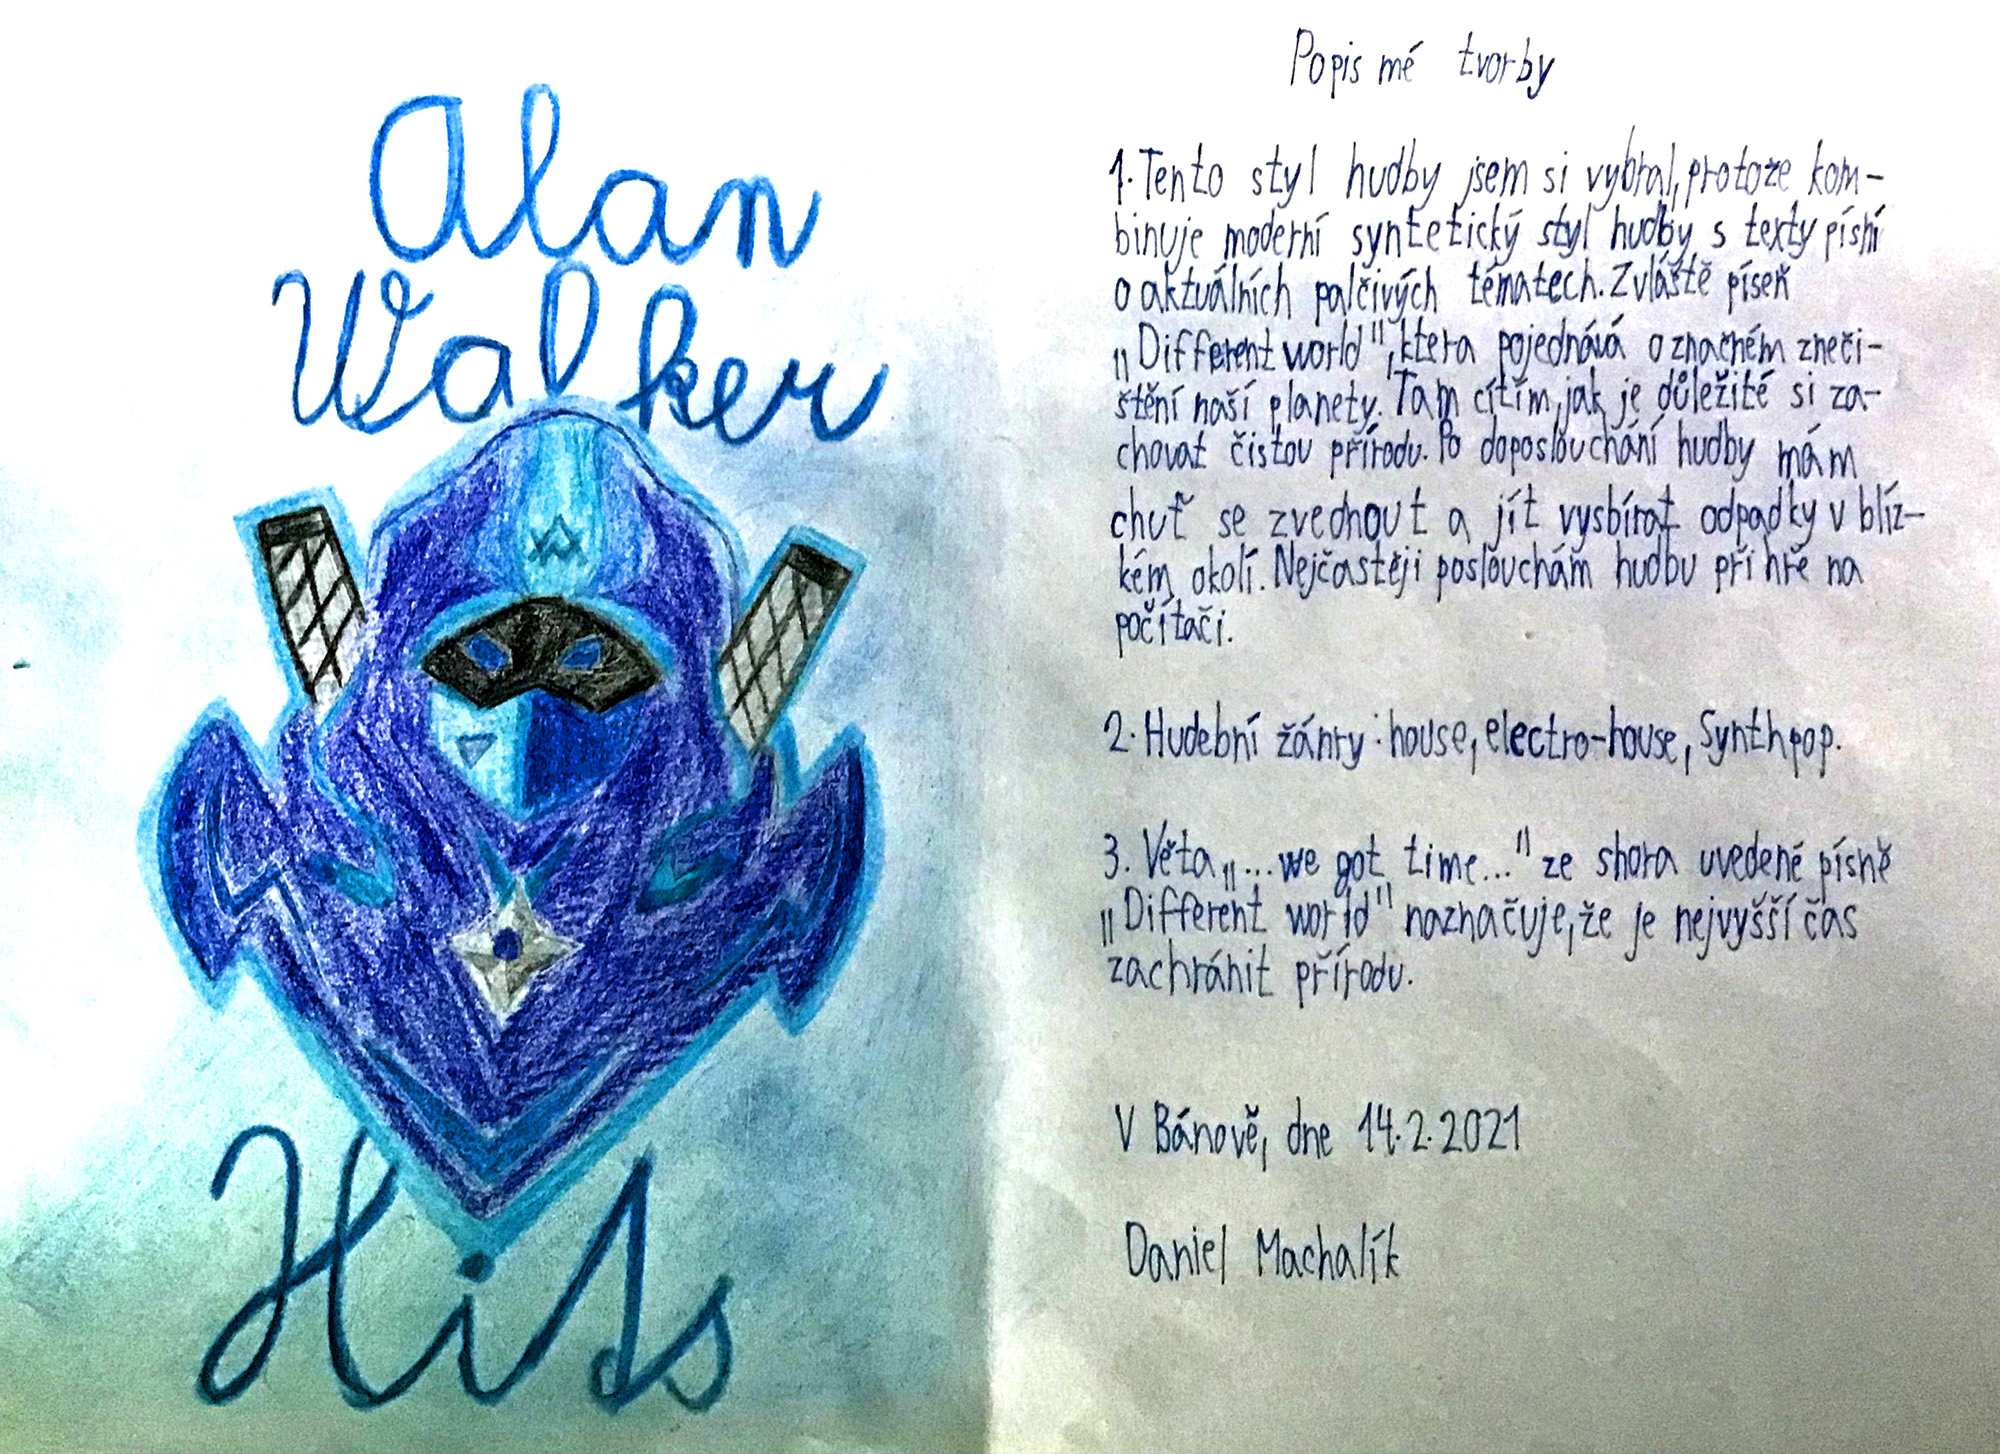 Alan
Walker
Hits
Popis mé tvorby
1. Tento styl hudby jsem si vybral, protože kom-
binuje moderní syntetický styl hudby s texty písní
o aktuálních palčivých tématech. Zvláště píseň
„Different world", ktera pojednává o značném zneči-
štění naší planety. Tam cítím, jak je důležité si za-
chovat čistou přírodu. Po doposlouchání hudby mám
chuť se zvednout a jít vysbírat odpadky v blíz-
kém okolí. Nejčastěji poslouchám hudbu při hře na
počítači.
2. Hudební žánry: house, electro-house, Synthpop.
3. Věta „...we got time..." ze shora uvedené písně
„Different world" naznačuje, že je nejvyšší čas
zachránit přírodu.
V Bánově, dne 14.2.2021
Daniel Machalík